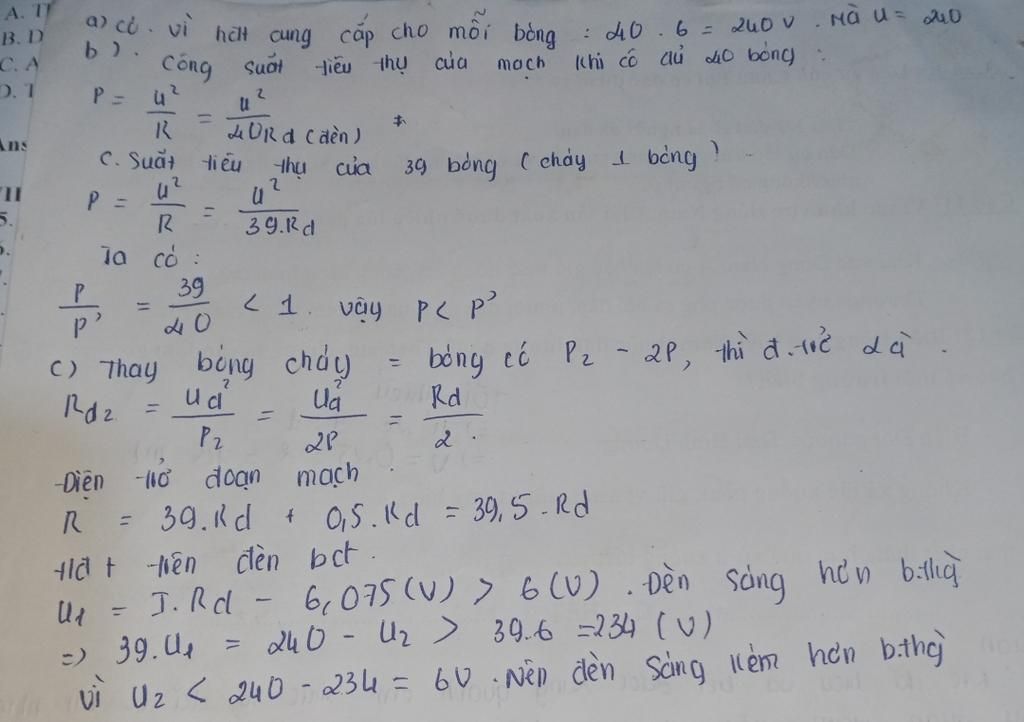 A. T
B. D
C. A
D. T
Ans
a) có. vì hđt cung cấp cho mỗi bóng : 40 . 6 = 240 V. Mà U = 240
b). Công suất tiêu thụ của mạch khi có đủ 40 bóng :
P = U²/R = U²/40Rđ (đèn)
C. Suất tiêu thụ của 39 bóng (cháy 1 bóng)
P = U²/R = U²/39.Rđ
Ta có :
P/P' = 39/40 < 1. vậy P < P'
c) Thay bóng cháy = bóng có P2 - 2P, thì đ.trở là .
Rd2 = Ud²/P2 = Ud²/2P = Rd/2.
Điện trở đoạn mạch :
R = 39.Rd + 0,5.Rd = 39,5.Rd
Hđt trên đèn bct.
U1 = I.Rd - 6,075(V) > 6(V). Đèn sáng hơn b.thg
=> 39.U1 = 240 - U2 > 39.6 = 234 (V)
Vì U2 < 240 - 234 = 6V. Nên đèn sáng kém hơn b.thg